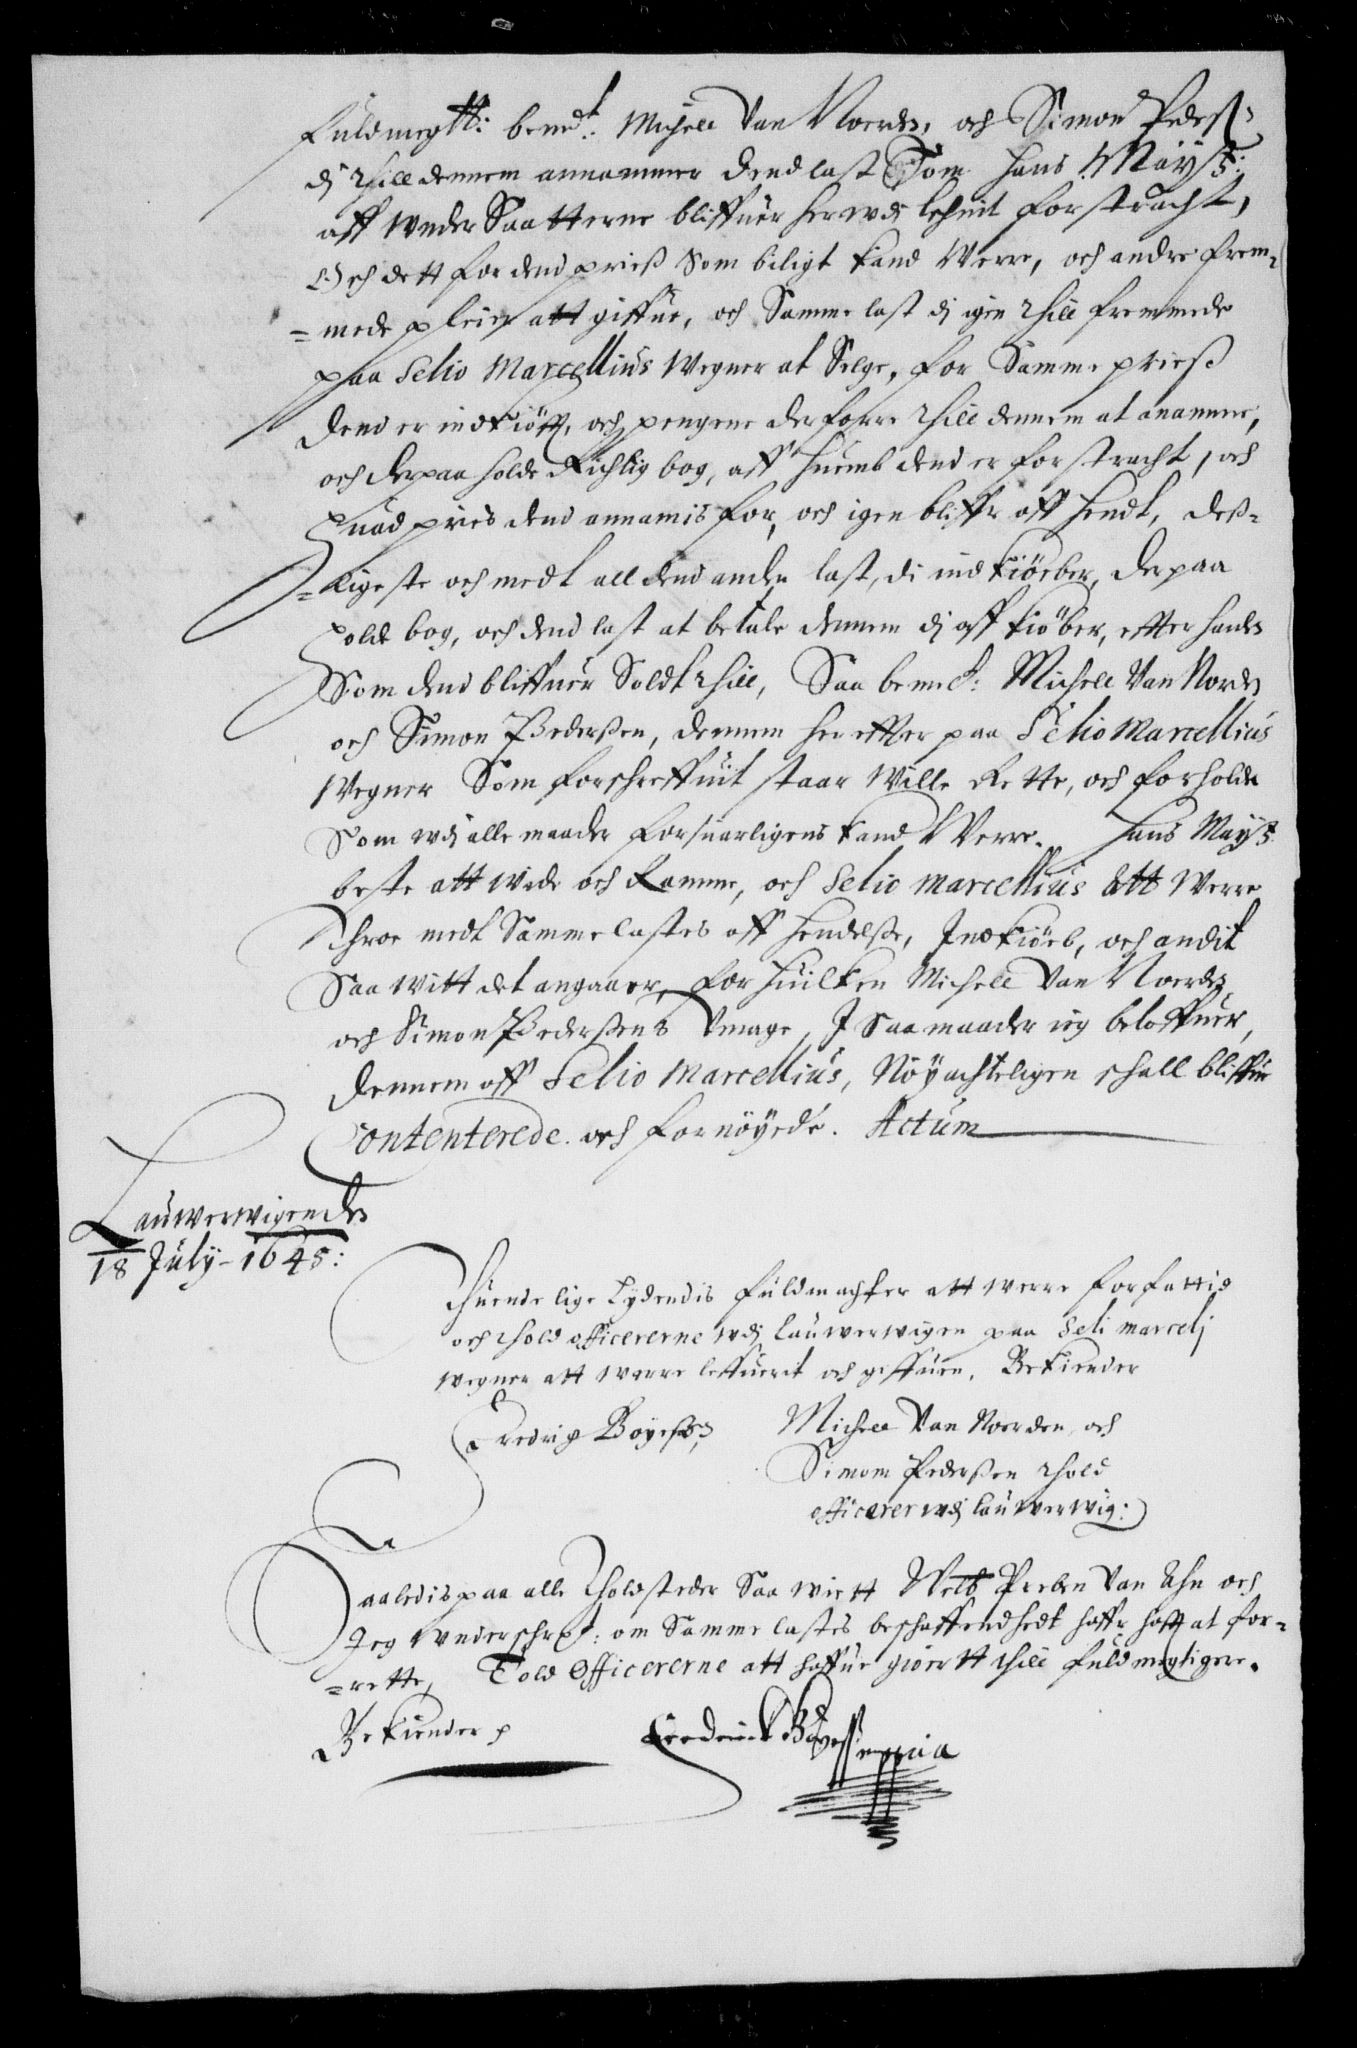 fuldmegtt: bemdt: Michell Van Noerden, och Simon Pederß:
dj thill dennem annammer dend last Som Hans Mayst:
aff Under Saatterne bliffuer her wdj Lehnit forstracht,
Och dett for dend prieß Som biligt kand Werre, och andre frem-
=mede pleier att giffue, och Samme last dj igen thill fremmede
paa Selio Marcellius Wegner at Selge, for Samme prieß
dend er indkiöfft, och pengene derforre thill dennem at anamme,
och derpaa holde Richtig bog, aff huemb dend er forstracht, och
huad pries dend annamis for, och igen bliffr aff hendt, deß-
=ligeste och medt all dend anden last, di indkiöeber, derpaa
holde bog, och dend last at betale dennem dj aff kiöber, effter haands
Som dend bliffuer Soldt thill, Saa bemelt: Michell Van Norden
och Simon Pederßen, dennem her effter paa Selio Marcellius
Wegner Som forschreffuit staar Wille Rette, och forholde
Som wdj alle maader forsuarligens kand Werre. Hans Mayst
beste att wide och Ramme, och Selio Marcellius Ett Werre
throe medt Samme lastes aff hendelße, Indkiöeb, och andit
Saa Witt det angaaer, for huilken Michell Van Noerden
och Simon Pederßens Umage, J Saa maader ieg beloffuer,
dennem aff Selio Marcellius, Nöyachteligen schall bliffue
Contenterede och fornöyede. Actum
Lauwerwigen den
18 July - 1645:
Thuende lige Lydendis fuldmachter att werre forfattid
och thold officererne wdj Lauwerwigen paa Seli Marcelj
wegner att werre leffuerit och geffuen, Bekiender
Fredrich Böyeßen, Michell Van Noerden, och
Simom Pederßen thold
officerer wdj Lauwerwig:
Saaledis paa alle Tholdsteder Saa wiitt Welb Preben Van Ahn och
Jeg Underschreff: om Samme lastes beschaffendhedt haffr hafft at for-
=rette, Told Officererne att haffue giörtt thill fuldmegtigere.
Bekiender
Frederick Böyesßen mppia